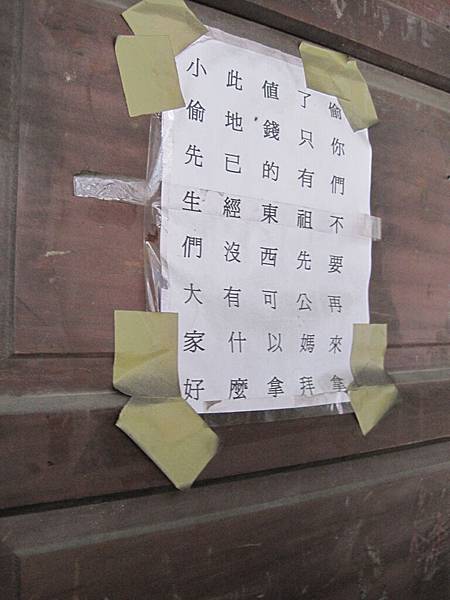 小偷先生們大家好
此地已經沒有什麼
值錢的東西可以拿
了只有祖先公媽拜
偷你們不要再來拿